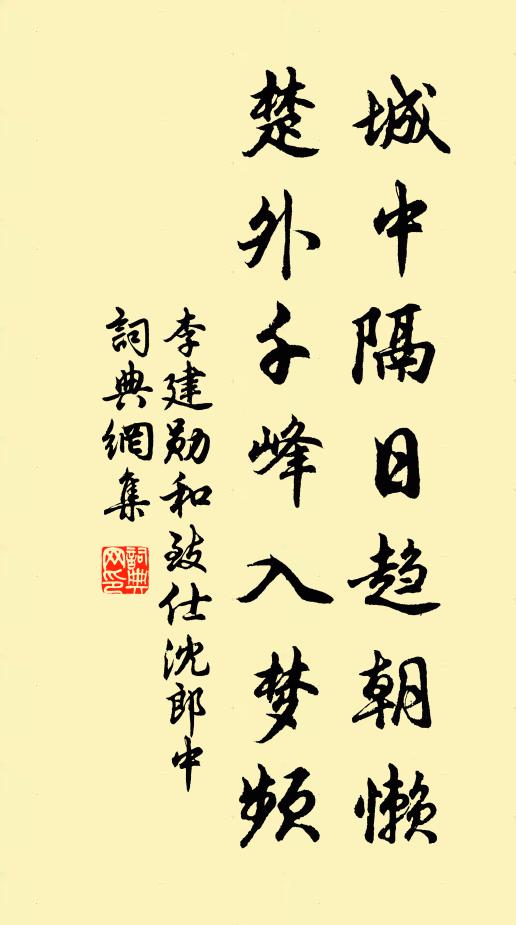 城中隔日趋朝懒
楚外千峰入梦频
李建勋和致仕沈郎中
詞典網集
詞典网印